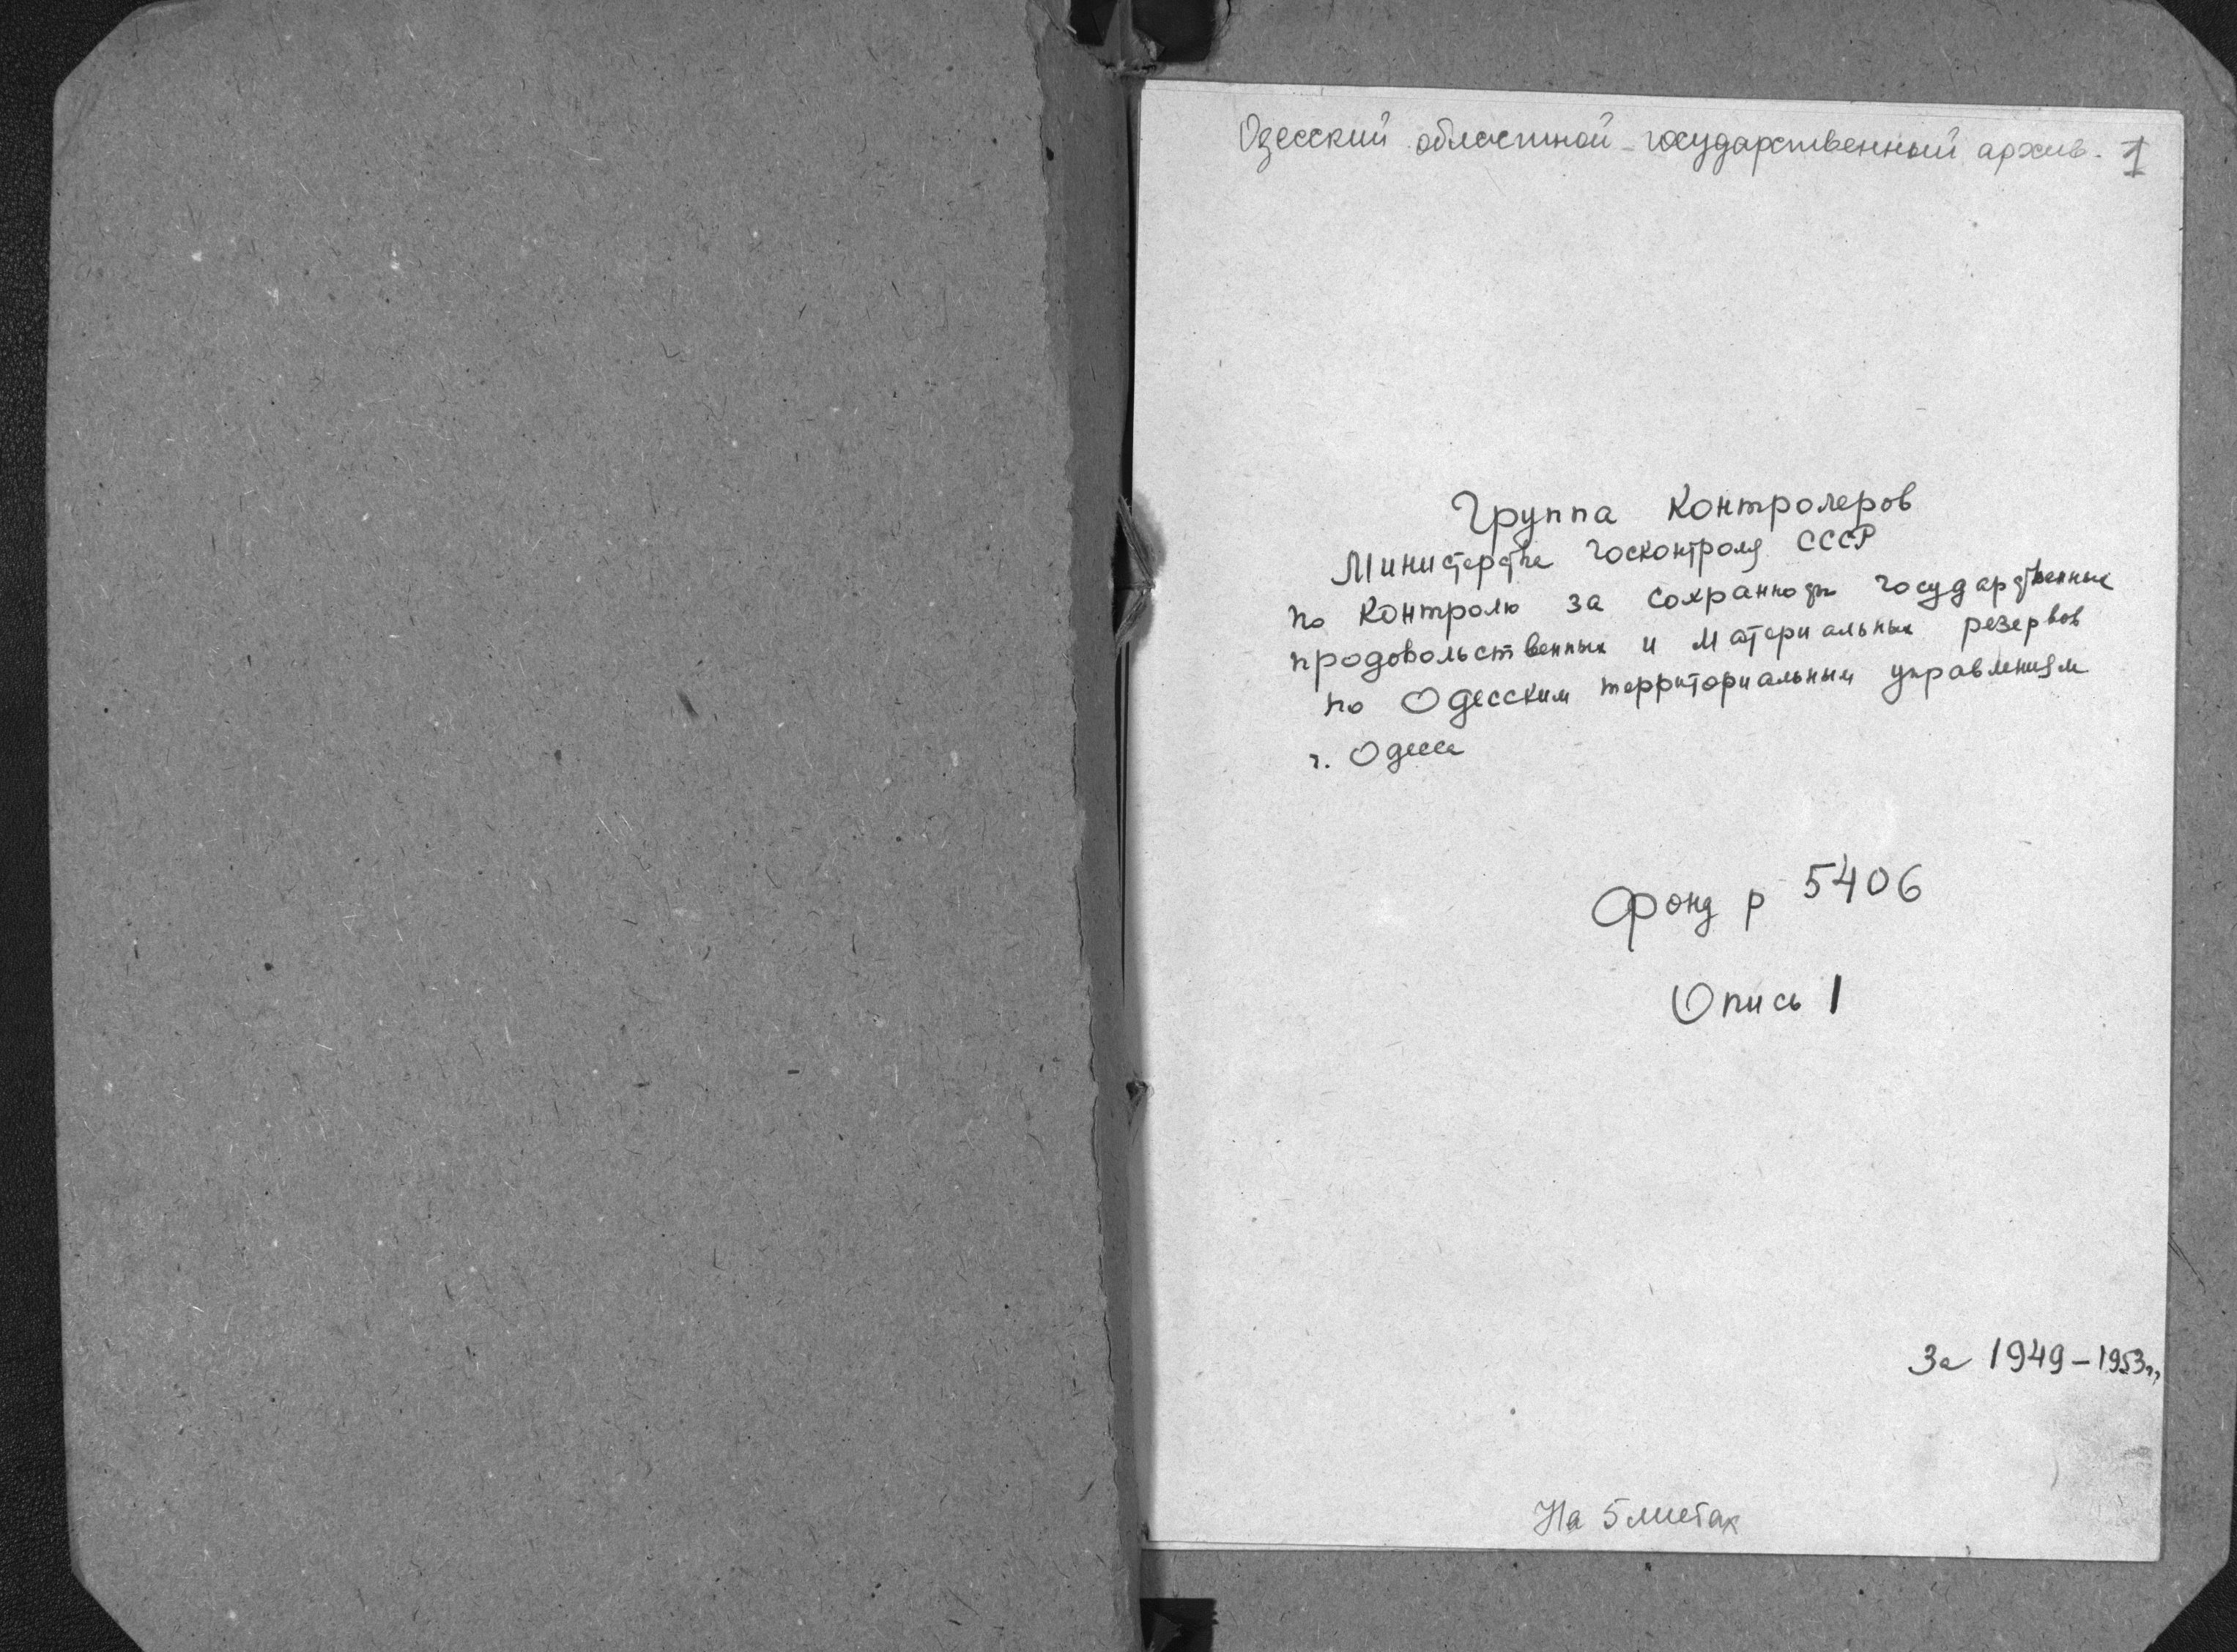 Одесский областной государственный архив. 1
Группа контролеров
Министерства Госконтроля СССР
по контролю за сохранностью государственных
продовольственных и материальных резервов
по Одесским территориальным управлениям
г. Одесса
Фонд р 5406
Опись 1
За 1949-1953гг,
На 5 листах